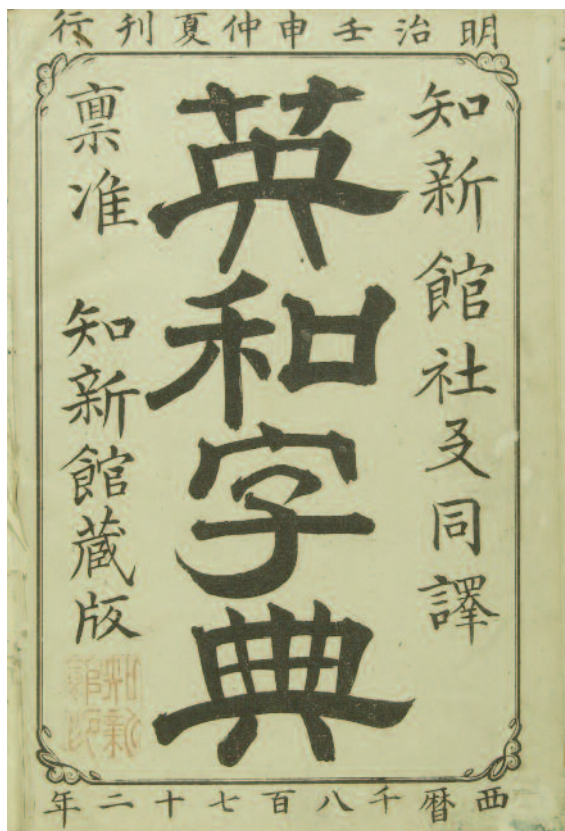 明治壬申仲夏刊行
知新館社友同譯
英和字典
禀准 知新館藏版
知新
館印
西暦千八百七十二年